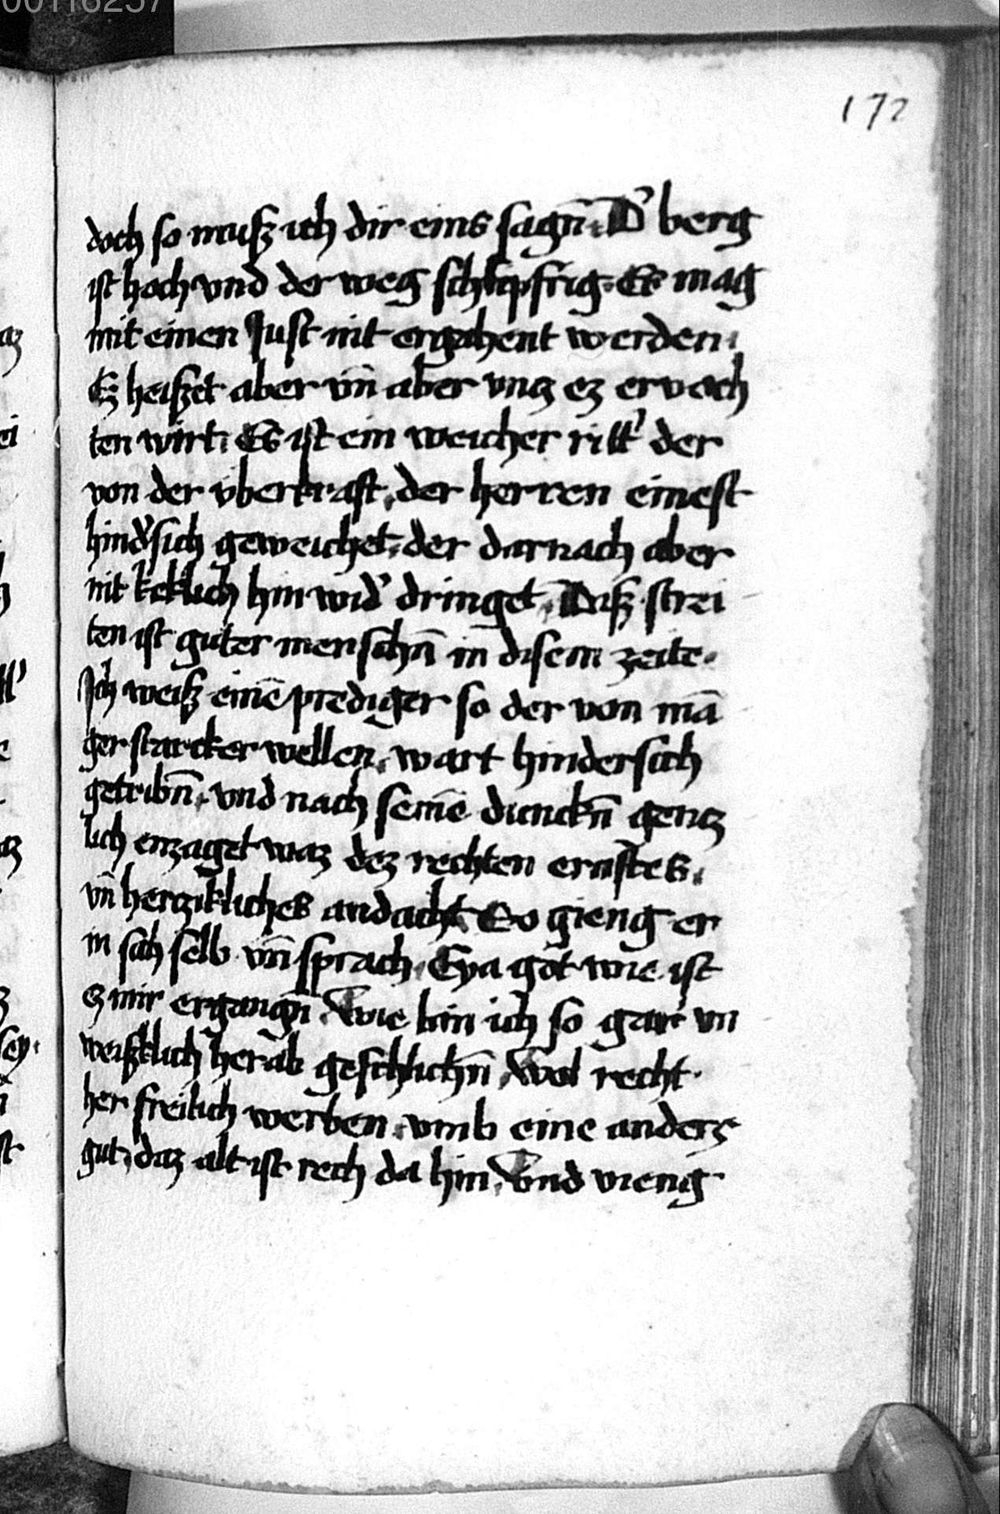 00116257
172
doch so muſz ich dir eins sagn̄. D' berg
ist hoch vnd der weg schlipfrig. Es mag
mit einen Just nit ergahent werden.
Ez heiſzet aber vn̄ aber vncz ez ervoch
ten wirt. Es ist ein weicher ritt' der
von der vberkraft, der herren einest
hind'sich geweichet, der darnach aber
nit kecklich hin wid' dringet. Diſz strei
ten ist guter menschn̄ in disem zeite.
Ich weiſz einē prediger so der von mā
ger starcker wellen, wart hindersich
getribn̄, vnd nach seinē dunckn̄ gencz
lich enzaget waz dez rechten ernstes,
vn̄ herczikliches andacht Eo gieng er
in sich selb vn̄ sprach, Eya got wie ist
ez mir ergangn̄. Wie bin ich so gar vn
weiſzklich herab geschlichn̄, Wol recht
her freilich werben, vmb eine anders
gut, daz alt ist rech da hin, Vnd vieng